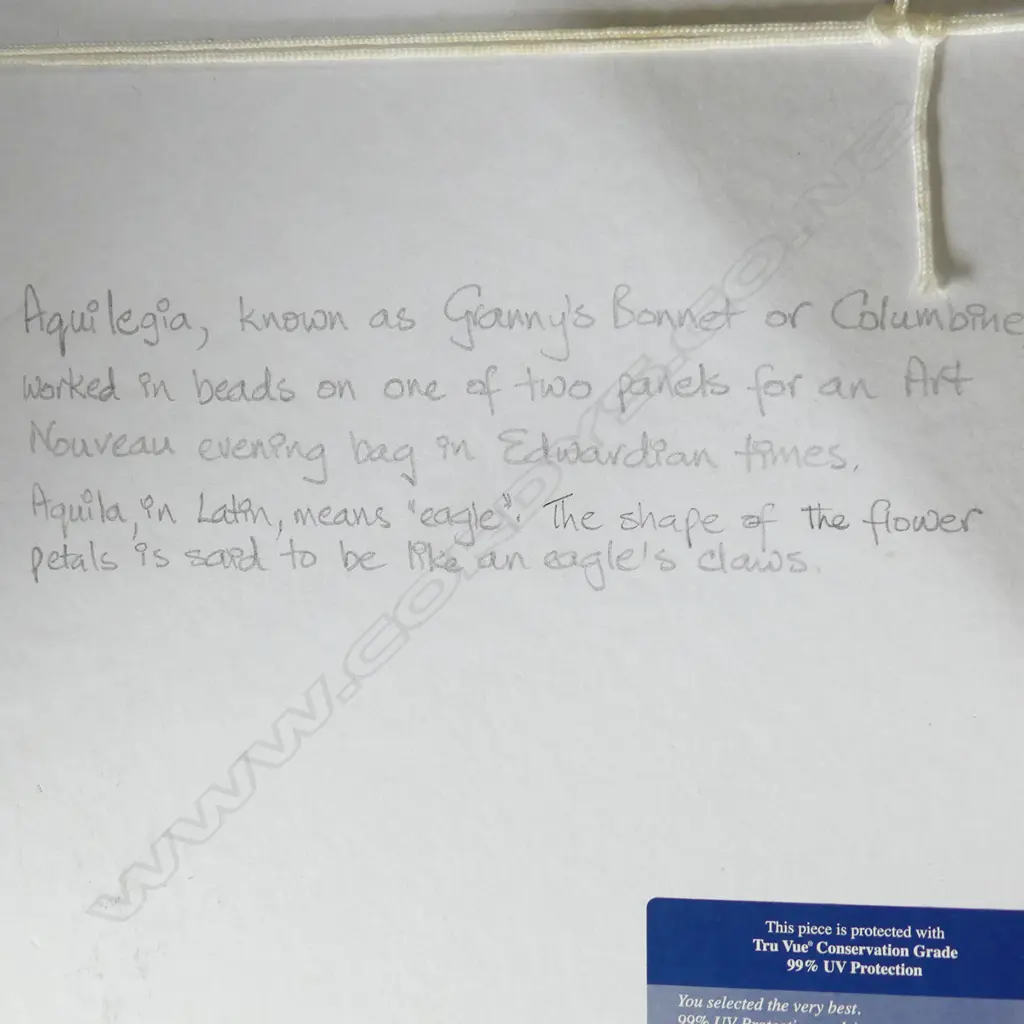 Aquilegia, known as Granny's Bonnet or Columbine
worked in beads on one of two panels for an Art
Nouveau evening bag in Edwardian times.
Aquila, in Latin, means "eagle". The shape of the flower
petals is said to be like an eagle's claws.
This piece is protected with
Tru Vue® Conservation Grade
99% UV Protection
You selected the very best.
99% UV